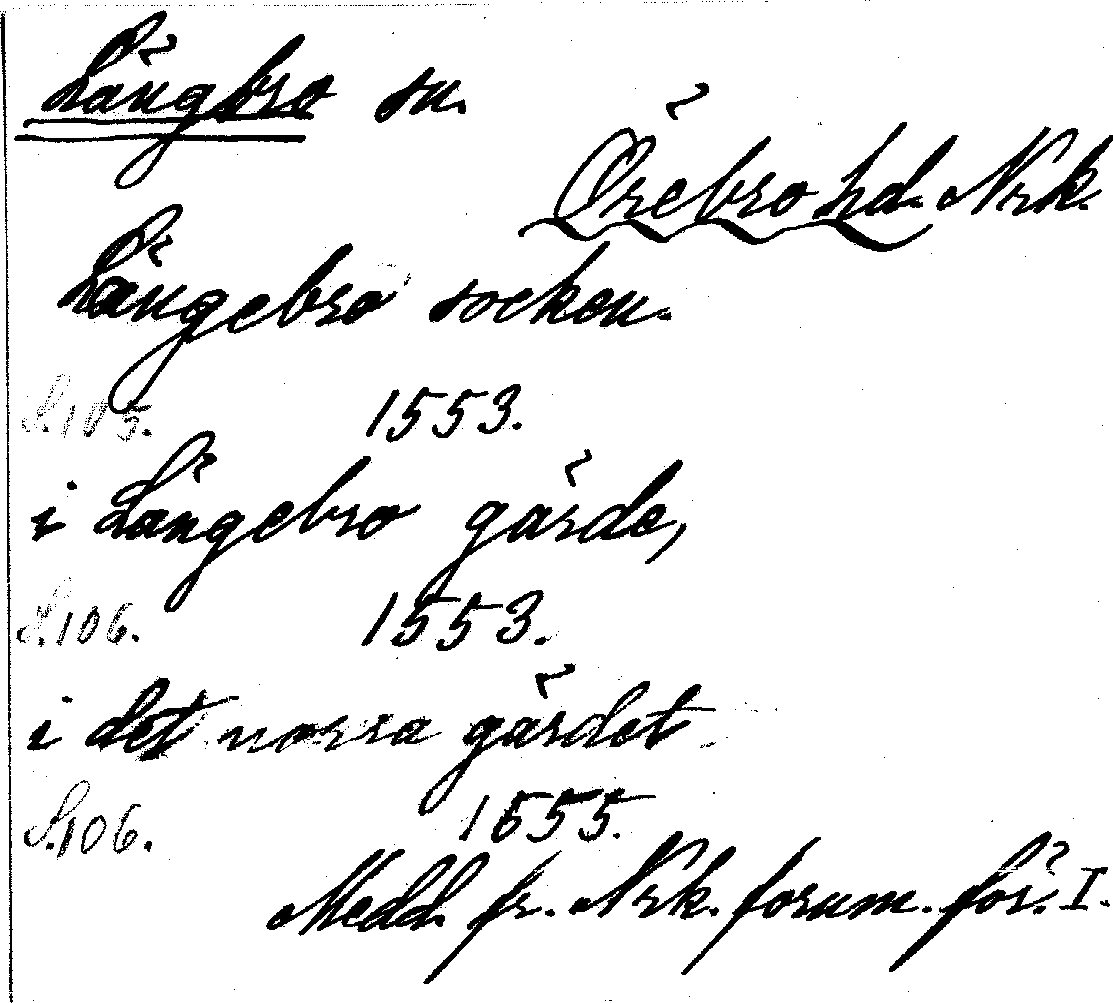 Långbro sn.
Örebro hd. Nrk.
Långebro socken.
S. 105. 1553.
i Långebro gärde,
S. 106. 1553.
i det norra gärdet
S. 106. 1555.
Medd. fr. Nrk. fornm. för. I.